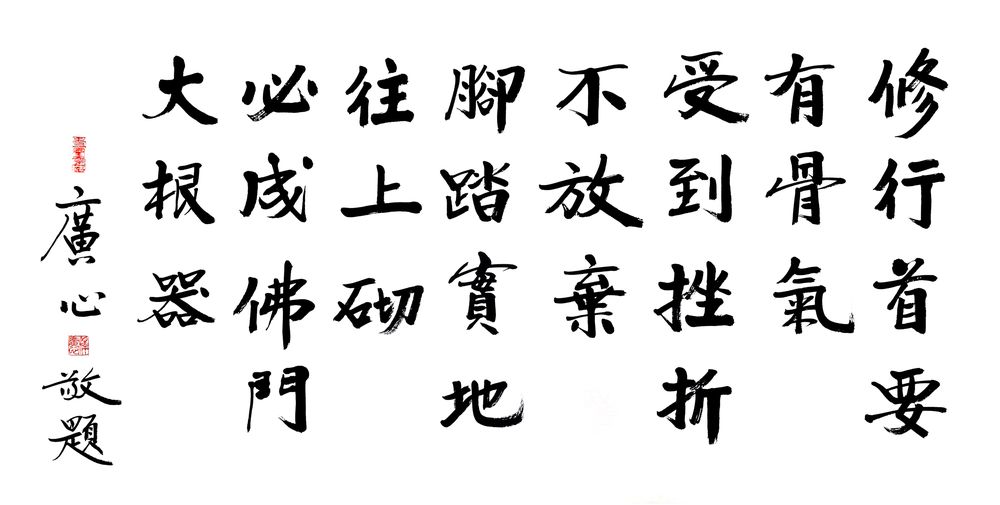 修行首要
有骨氣
受到挫折
不放棄
腳踏實地
往上砌
必成佛門
大根器
廣心敬題